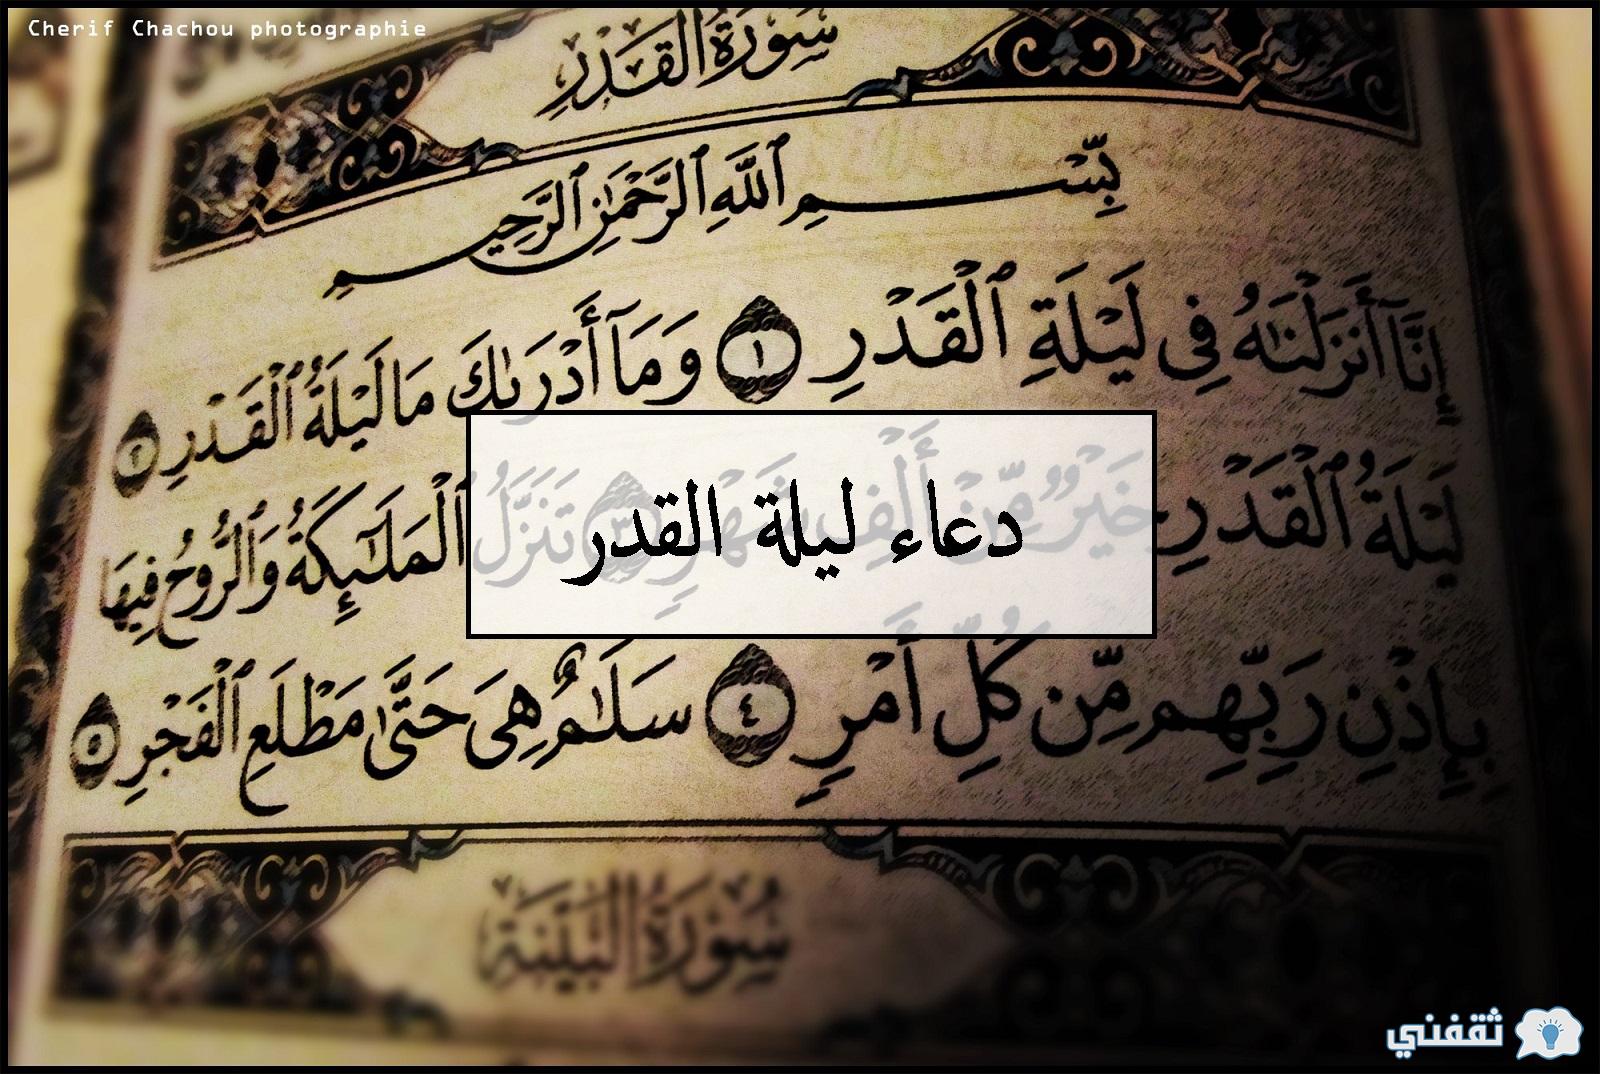 Cherif Chachou photographie
سُورَةُ القَدْرِ
بِسْمِ ٱللَّهِ ٱلرَّحْمَٰنِ ٱلرَّحِيمِ
إِنَّآ أَنزَلْنَٰهُ فِي لَيْلَةِ ٱلْقَدْرِ ١ وَمَآ أَدْرَىٰكَ مَا لَيْلَةُ ٱلْقَدْرِ ٢
لَيْلَةُ ٱلْقَدْرِ خَيْرٌ مِّنْ أَلْفِ شَهْرٍ ٣ تَنَزَّلُ ٱلْمَلَٰٓئِكَةُ وَٱلرُّوحُ فِيهَا
دعاء ليلة القدر
بِإِذْنِ رَبِّهِم مِّن كُلِّ أَمْرٍ ٤ سَلَٰمٌ هِىَ حَتَّىٰ مَطْلَعِ ٱلْفَجْرِ ٥
سُورَةُ البَيِّنَةِ
ثقفني